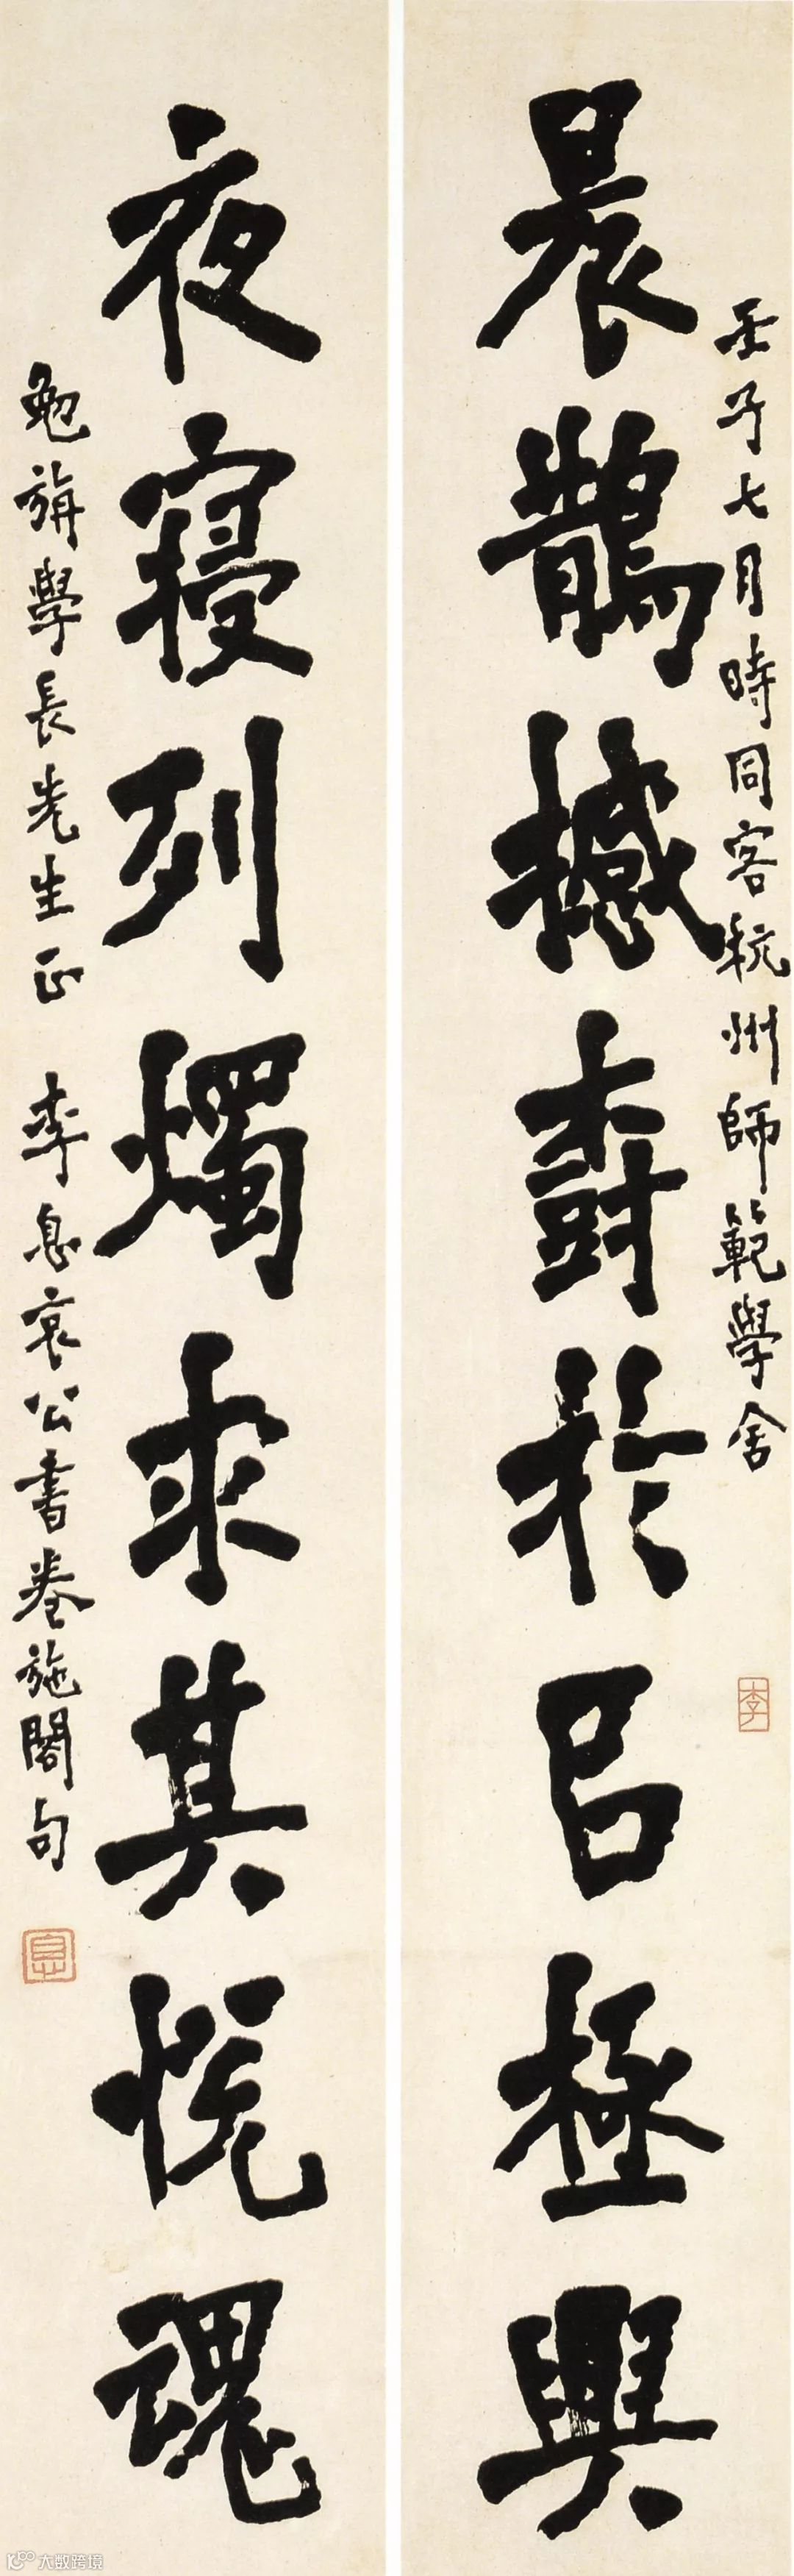 壬子七月時同客杭州師範學舍
晨鵲撼樹於㠯極興
李
夜寢列燭求其悅魂
勉旃學長先生正 李息哀公書卷施閣句
息
大数跨境